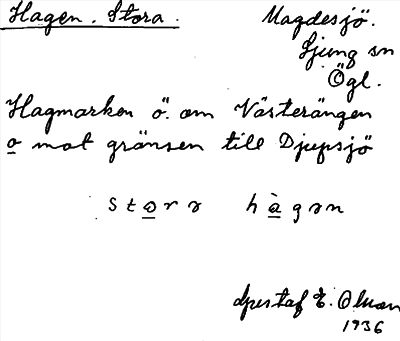 Hagen. Stora.
Magdesjö.
Ljung sn
Ögl.
Hagmarken ö. om Västerängen
o mot gränsen till Djupsjö
storə hàgən
E.
1936